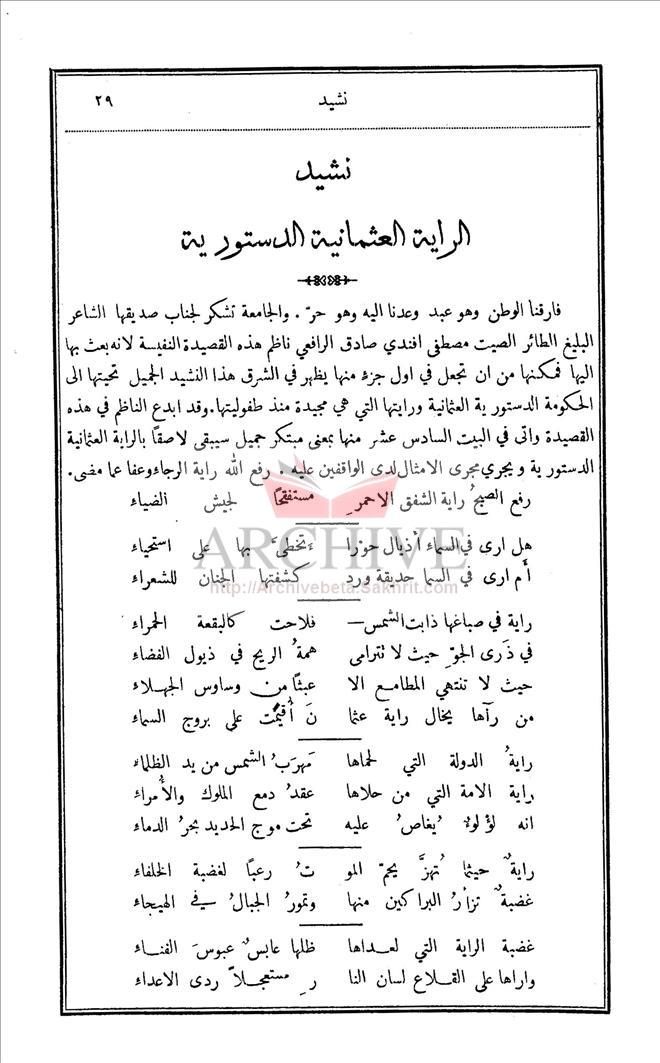 نشيد ٢٩
نشيد
الراية العثمانية الدستورية
فارقنا الوطن وهو عبد وعدنا اليه وهو حرّ . والجامعة تشكر لجناب صديقها الشاعر
البليغ الطائر الصيت مصطفى افندي صادق الرافعي ناظم هذه القصيدة النفيسة لانه بعث بها
اليها فمكنها من ان تجعل في اول جزء منها يظهر في الشرق هذا النشيد الجميل تحيتها الى
الحكومة الدستورية العثمانية ورايتها التي هي مجيدة منذ طفوليتها. وقد ابدع الناظم في هذه
القصيدة واتى في البيت السادس عشر منها بمعنى مبتكر جميل سيبقى لاصقاً بالراية العثمانية
الدستورية ويجري مجرى الامثال لدى الواقفين عليه . رفع الله راية الرجاء وعفا عما مضى.
رفع الصبحُ راية الشفق الاحمرِ مستفتحاً لجيش الضياء
ARCHIVE
هل ارى في السماء أذيال حوراء تخطىَّ بها على استحياء
أم ارى في السما حديقة ورد كشفتها الجنان للشعراء
http://Archivebeta.Sakhrit.com
راية في صباغها ذابت الشمس– فلاحت كالبقعة الحمراء
في ذَرى الجوّ حيث لا تترامى همةُ الريح في ذيول الفضاء
حيث لا تنتهي المطامع الا عبثاً من وساوس الجهلاء
من رآها يخال راية عثما نَ أُقيمت على بروج السماء
رايةُ الدولة التي لحماها مَهرَبُ الشمس من يد الظلماء
راية الامة التي من حلاها عقدُ دمع الملوك والأُمراء
انه لؤلؤٌ يُغاصُ عليه تحت موج الحديد بحرُ الدماء
رايةٌ حيثما تُهزَّ يحمّ المو تُ رعباً لغضبة الخلفاء
غضبةٌ تزأرُ البراكين منها وتمورُ الجبالُ في الهيجاء
غضبة الراية التي لعداها ظلها عابسٌ عبوسَ الفناء
واراها على القلاع لسان النا رِ مستعجلاً ردى الاعداء